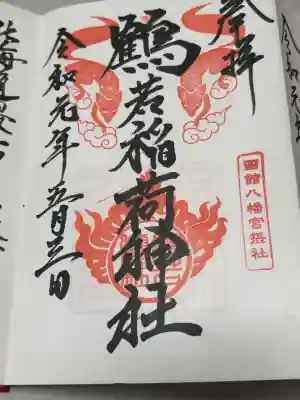 奉拝
鶴若稲荷神社
令和元年五月三日
函館八幡宮摂社